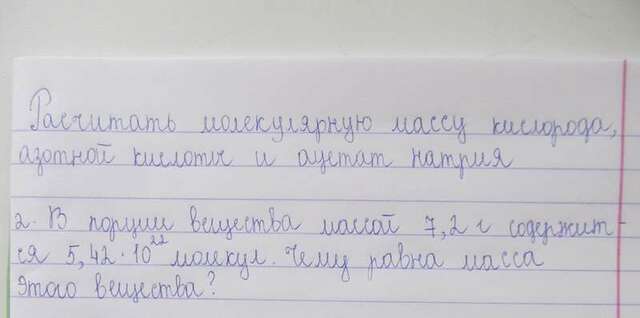 Расчитать молекулярную массу кислорода,
азотной кислоты и ацетат натрия
2. В порции вещества массой 7,2 г содержит-
ся 5,42·10²² молекул. Чему равна масса
этого вещества?